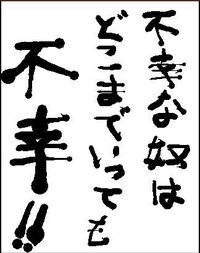 不幸な奴は
どこまでいっても
不幸!!